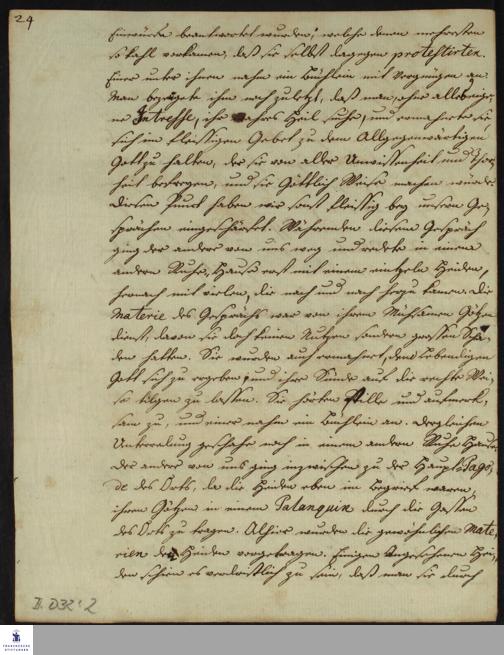 24
Einwürfe beantwortet wurden, welche denen mehresten
so kahl vorkamen, daß sie selbst dagegen protestirten.
Einer unter ihnen nahm ein Büchlein mit Vergnügen an.
Man bezeugete ihm noch zuletzt, daß man, ohne alles eige-
ne Intresse, ihr wahres Heil suche, und ermahnete sie
sich im fleissigen Gebet zu dem Allgegenwärtigen
Gott zu halten, der sie von aller Unwissenheit und Thor-
heit befreyen, und sie Göttlich Weise machen würde.
Diesen Punct haben wir sonst fleissig bey unsern Ge-
sprächen eingeschärfet. Währenden diesem Gespräch
ging der andere von uns weg und redete in einem
andern Ruhe-Hause erst mit einem eintzeln Heiden,
hernach mit vielen, die nach und nach herzu kamen. Die
Materie des Gesprächs war von ihrem Mühsamen Götzen
dienst, davon sie doch keinen Nutzen sondern grossen Scha-
den hätten. Sie wurden auch ermahnet, dem Lebendigen
Gott sich zu ergeben, und ihre Sünde auf die rechte Wei-
se tilgen zu lassen. Sie hörten stille und aufmerk-
sam zu, und einer nahm ein Büchlein an. Dergleichen
Unterredung geschahe noch in einem andern Ruhe Hause.
Der andere von uns ging inzwischen zu der Haupt-Pago-
de des Orts, da die Heiden eben im Begriff waren,
ihren Götzen in einem Palanquin durch die Gassen
des Orts zu tragen. Alhier wurden die gewöhnlichen Mate-
rien den Heiden vorgetragen. Einigen Angesehenen Hei-
den schien es verdrießlich zu seyn, daß man sie durch
II. D32:2
FRANCKESCHE
STIFTUNGEN